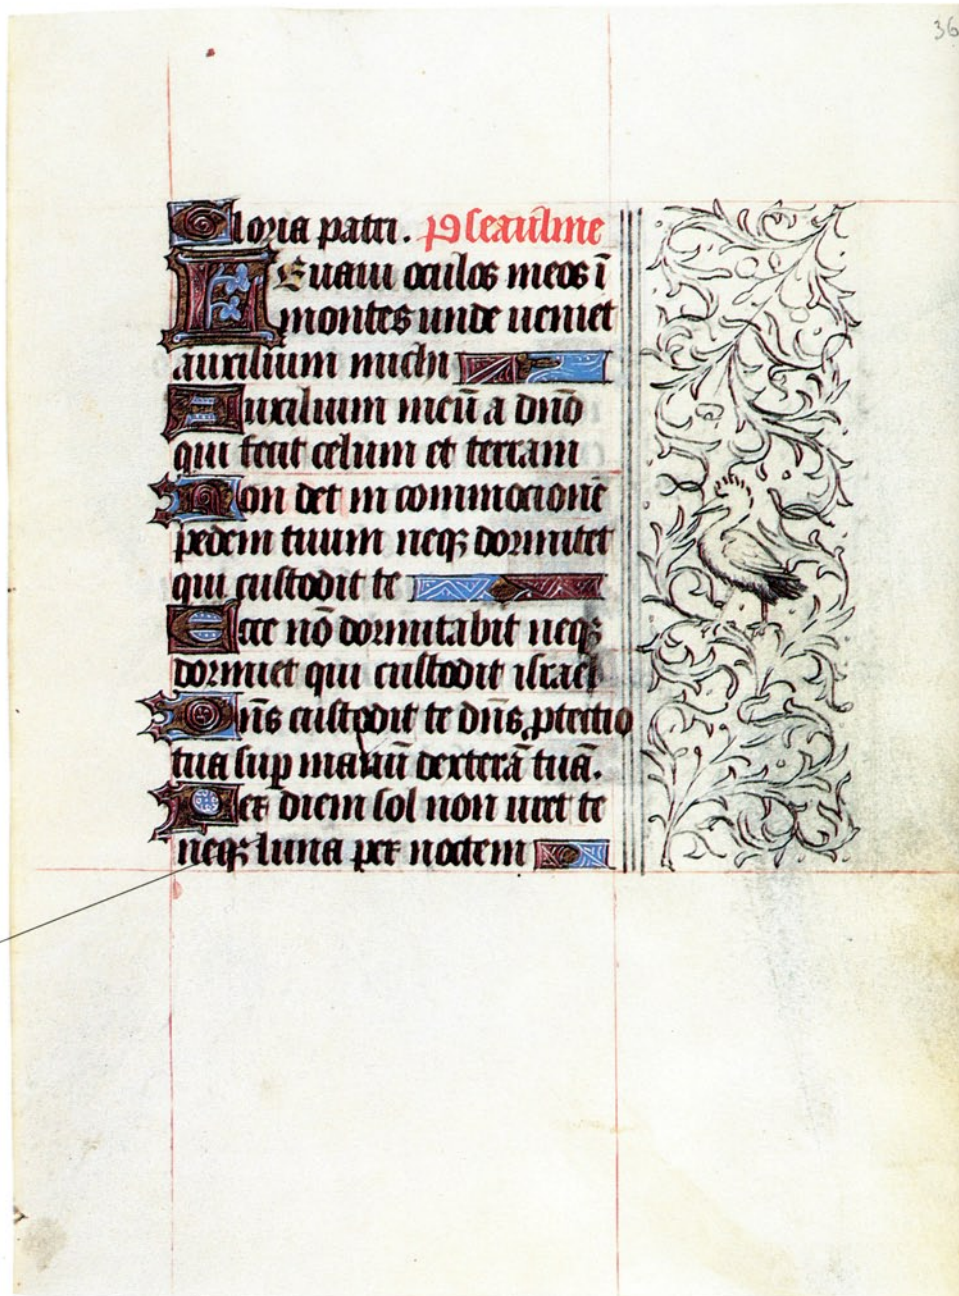 36
Gloria patri. Pseaulme
LEuaui oculos meos ī
montes unde ueniet
auxilium michi
Auxilium meū a dn̄o
qui fecit celum et terram
Non det in commocionē
pedem tuum neqꝫ dormitet
qui custodit te
Ecce nō dormitabit neqꝫ
dormiet qui custodit israel
Dn̄s custodit te dn̄s ꝓtectio
tua sup manū dexterā tuā.
Per diem sol non uret te
neqꝫ luna per noctem